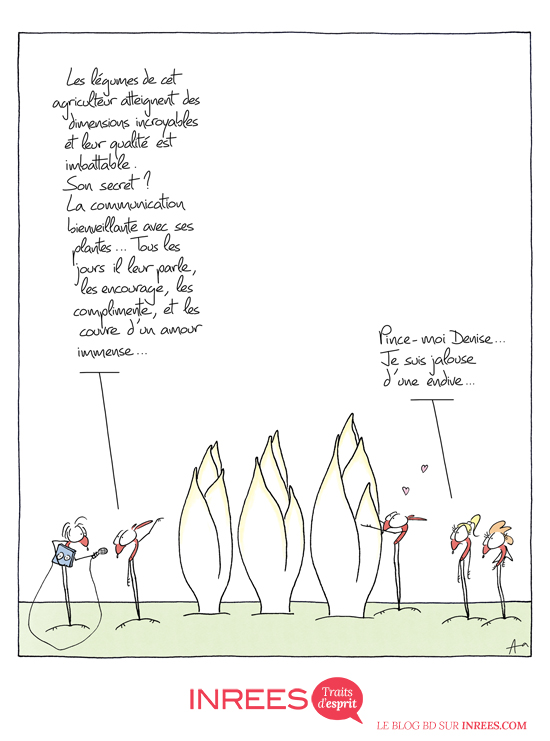 Les légumes de cet
agriculteur atteignent des
dimensions incroyables
et leur qualité est
imbattable.
Son secret ?
La communication
bienveillante avec ses
plantes... Tous les
jours il leur parle,
les encourage, les
complimente, et les
couvre d'un amour
immense...
Pince-moi Denise...
Je suis jalouse
d'une endive...
INREES
Traits
d'esprit
LE BLOG BD SUR INREES.COM